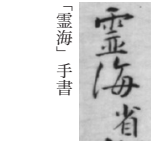 霊海省
「霊海」手書